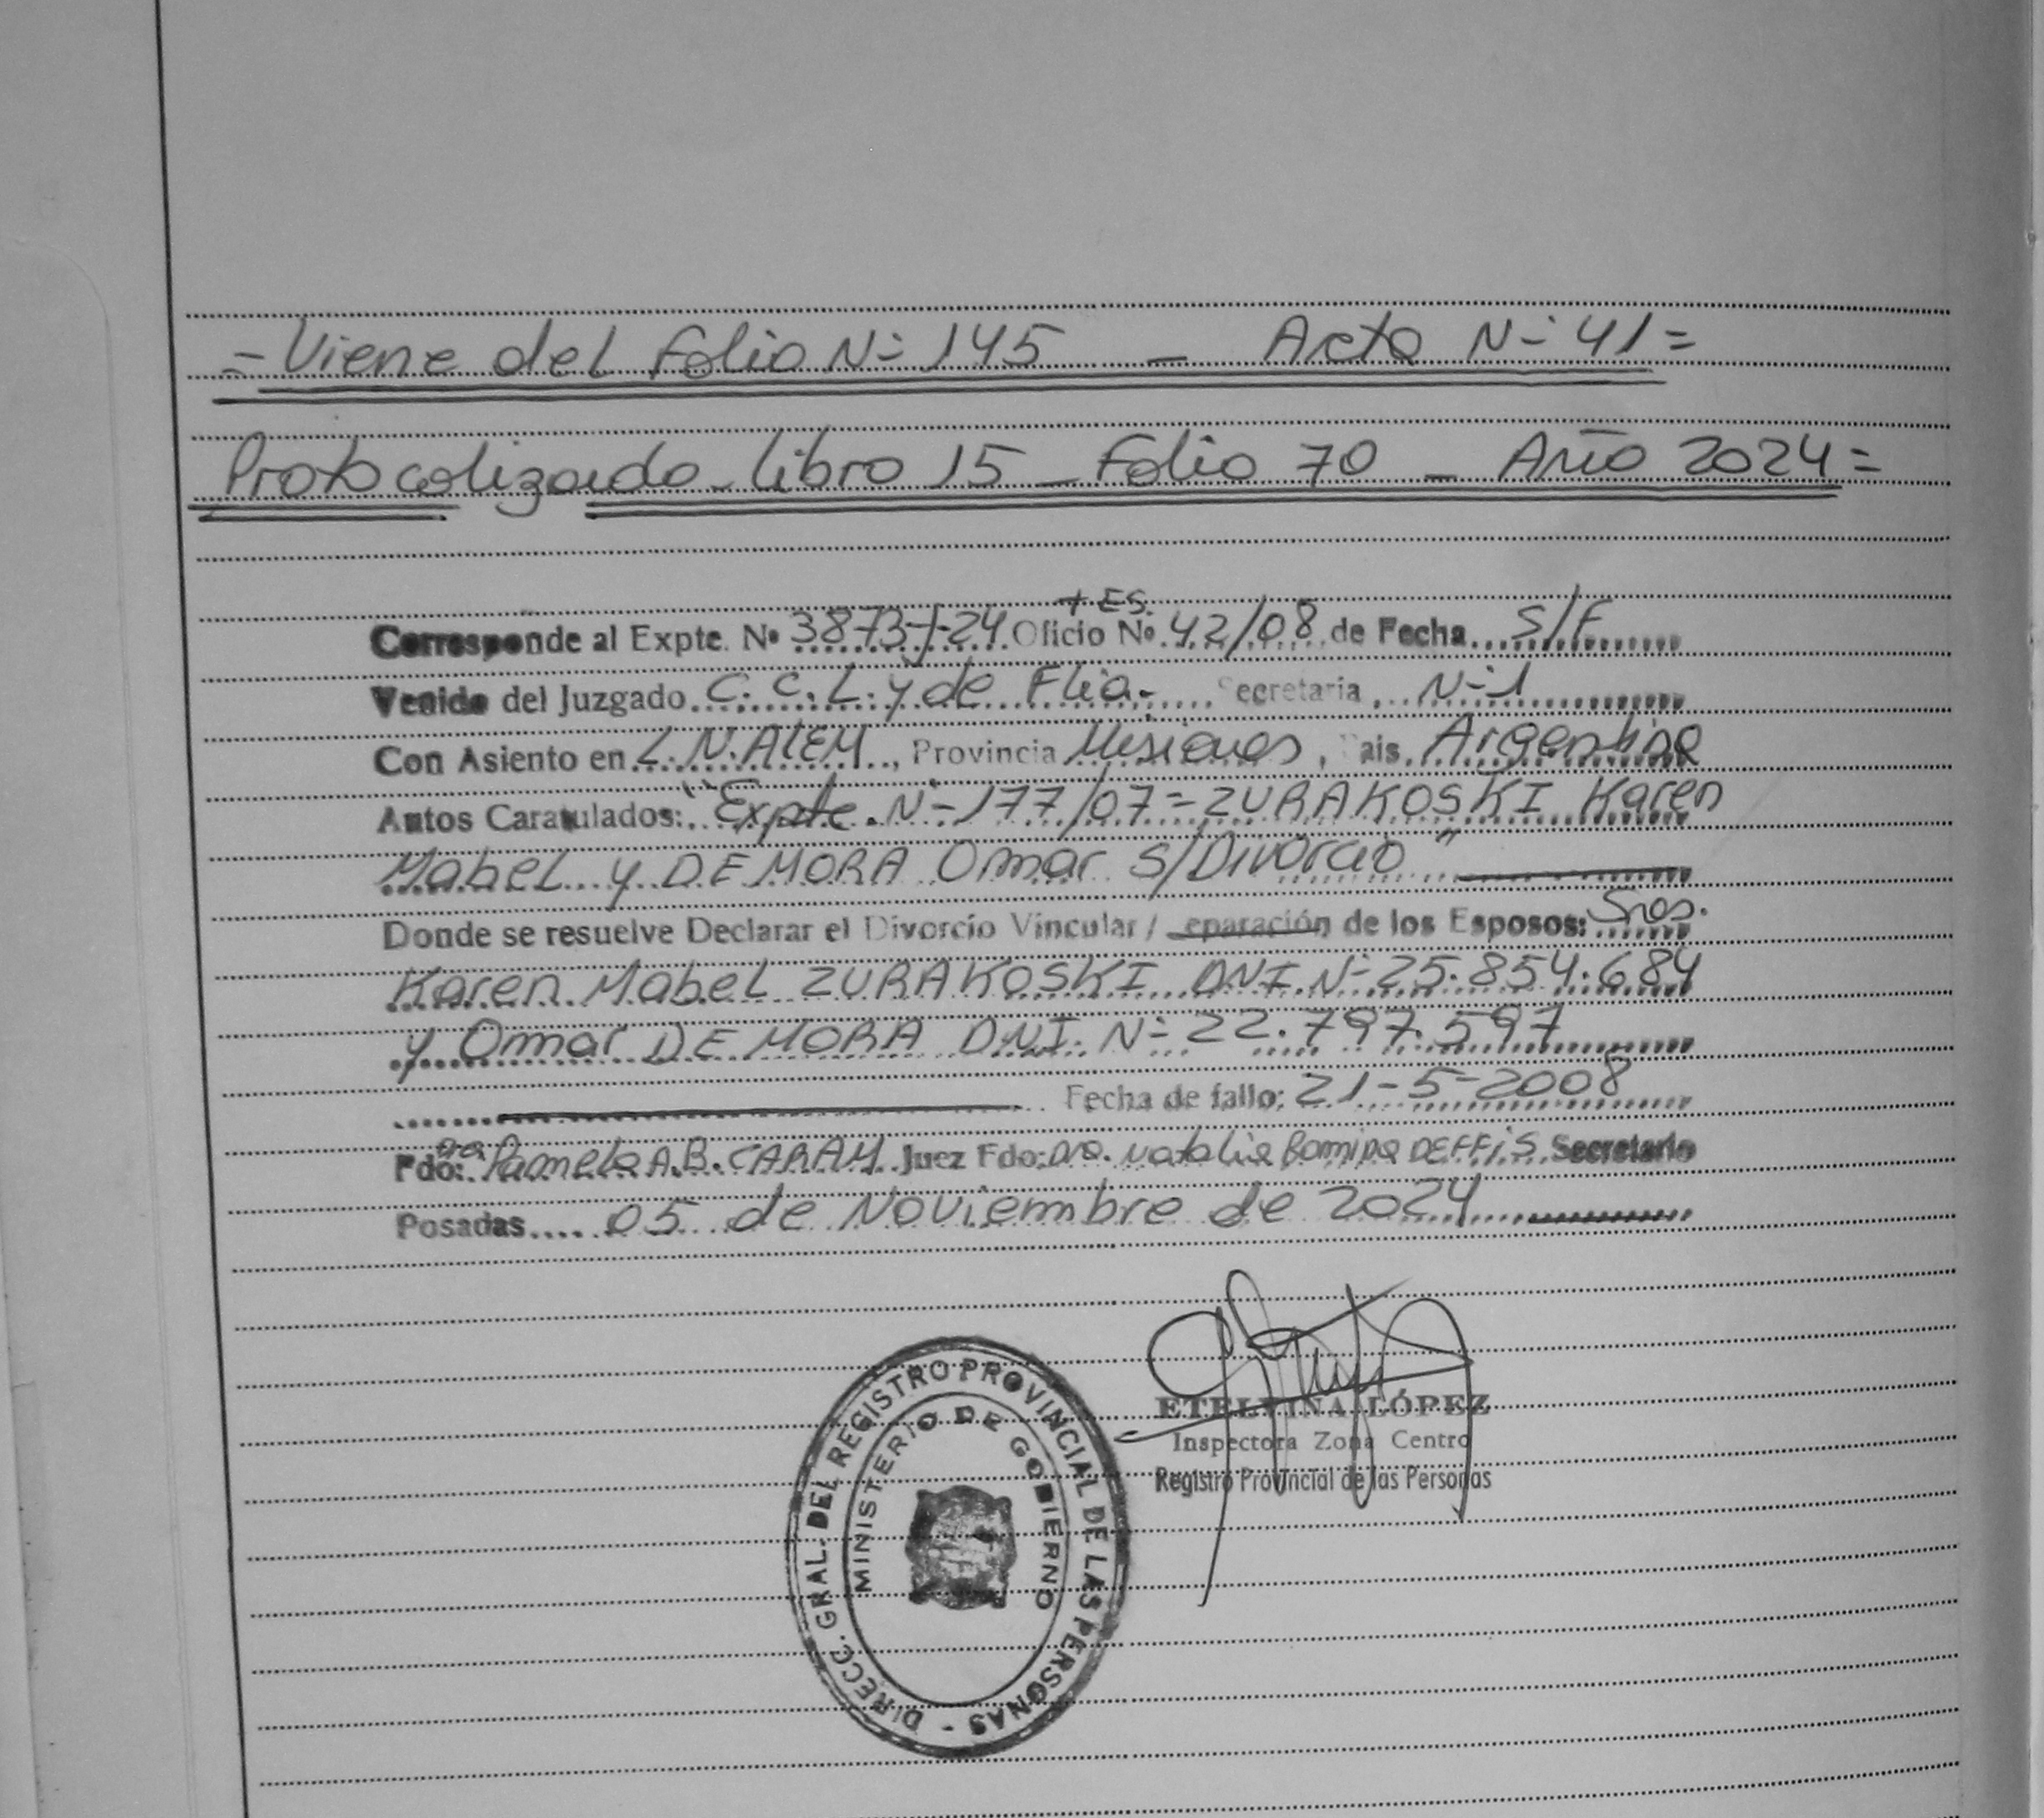 = Viene del folio Nº 145 — Acta Nº 41 =
Protocolizado - libro 15 - Folio 70 - Año 2024 =
+ ES.
Corresponde al Expte. Nº 3873-J-24 Oficio Nº 42/08 de Fecha S/F
Venido del Juzgado C.C.L. y de Flia. Secretaria Nº 1
Con Asiento en L.N. ALEM, Provincia Misiones, Pais. Argentina
Autos Caratulados: "Expte. Nº 177/07 = ZURAKOSKI Karen
Mabel y DE MORA Omar S/Divorcio"
Donde se resuelve Declarar el Divorcio Vincular / eparación de los Esposos: Sres.
Karen Mabel ZURAKOSKI DNI Nº 25.854.684
y Omar DE MORA D.N.I. Nº 22.797.597
Fecha de fallo: 21-5-2008
Fdo: Dra. Pamela A.B. CARAM Juez Fdo: Dra. Natalia Romina DEFFIS Secretario
Posadas 05 de Noviembre de 2024
ETELVINA LÓPEZ
Inspectora Zona Centro
Registro Provincial de las Personas
DIRECC. GRAL. DEL REGISTRO PROVINCIAL DE LAS PERSONAS -
MINISTERIO DE GOBIERNO